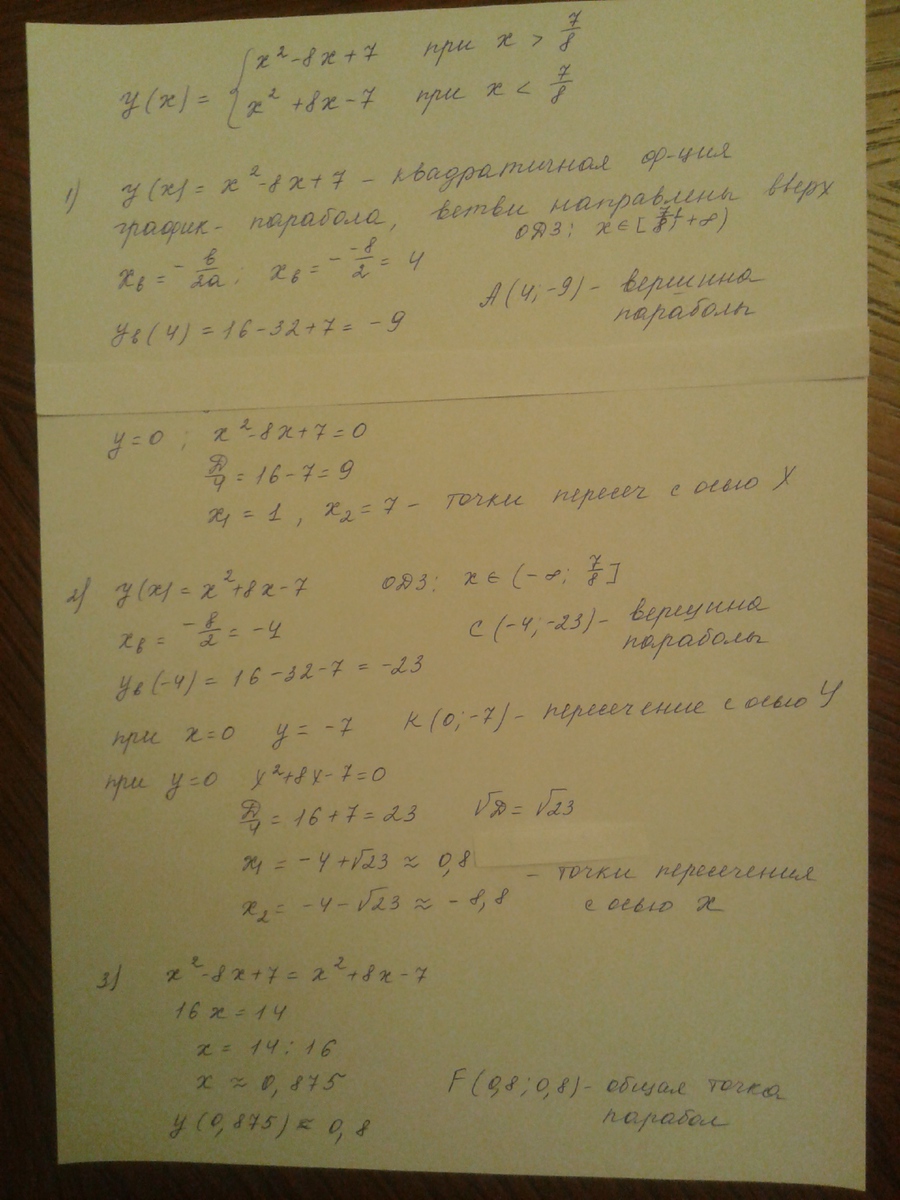 y(x) = { x² - 8x + 7 при x > 7/8
x² + 8x - 7 при x < 7/8
1) y(x) = x² - 8x + 7 - квадратичная ф-ция
график - парабола, ветви направлены вверх
ОДЗ: x ∈ [7/8; +∞)
xв = -в/2а; xв = - -8/2 = 4
A(4; -9) - вершина
параболы
yв(4) = 16 - 32 + 7 = -9
y = 0; x² - 8x + 7 = 0
D/4 = 16 - 7 = 9
x₁ = 1, x₂ = 7 - точки пересеч с осью X
2) y(x) = x² + 8x - 7 ОДЗ: x ∈ (-∞; 7/8]
xв = -8/2 = -4 C(-4; -23) - вершина
параболы
yв(-4) = 16 - 32 - 7 = -23
при x = 0 y = -7 K(0; -7) - пересечение с осью Y
при y = 0 x² + 8x - 7 = 0
D/4 = 16 + 7 = 23 √D = √23
x₁ = -4 + √23 ≈ 0,8
x₂ = -4 - √23 ≈ -8,8 - точки пересечения
с осью X
3) x² - 8x + 7 = x² + 8x - 7
16x = 14
x = 14 : 16
x ≈ 0,875
F(0,8; 0,8) - общая точка
парабол
y(0,875) ≈ 0,8